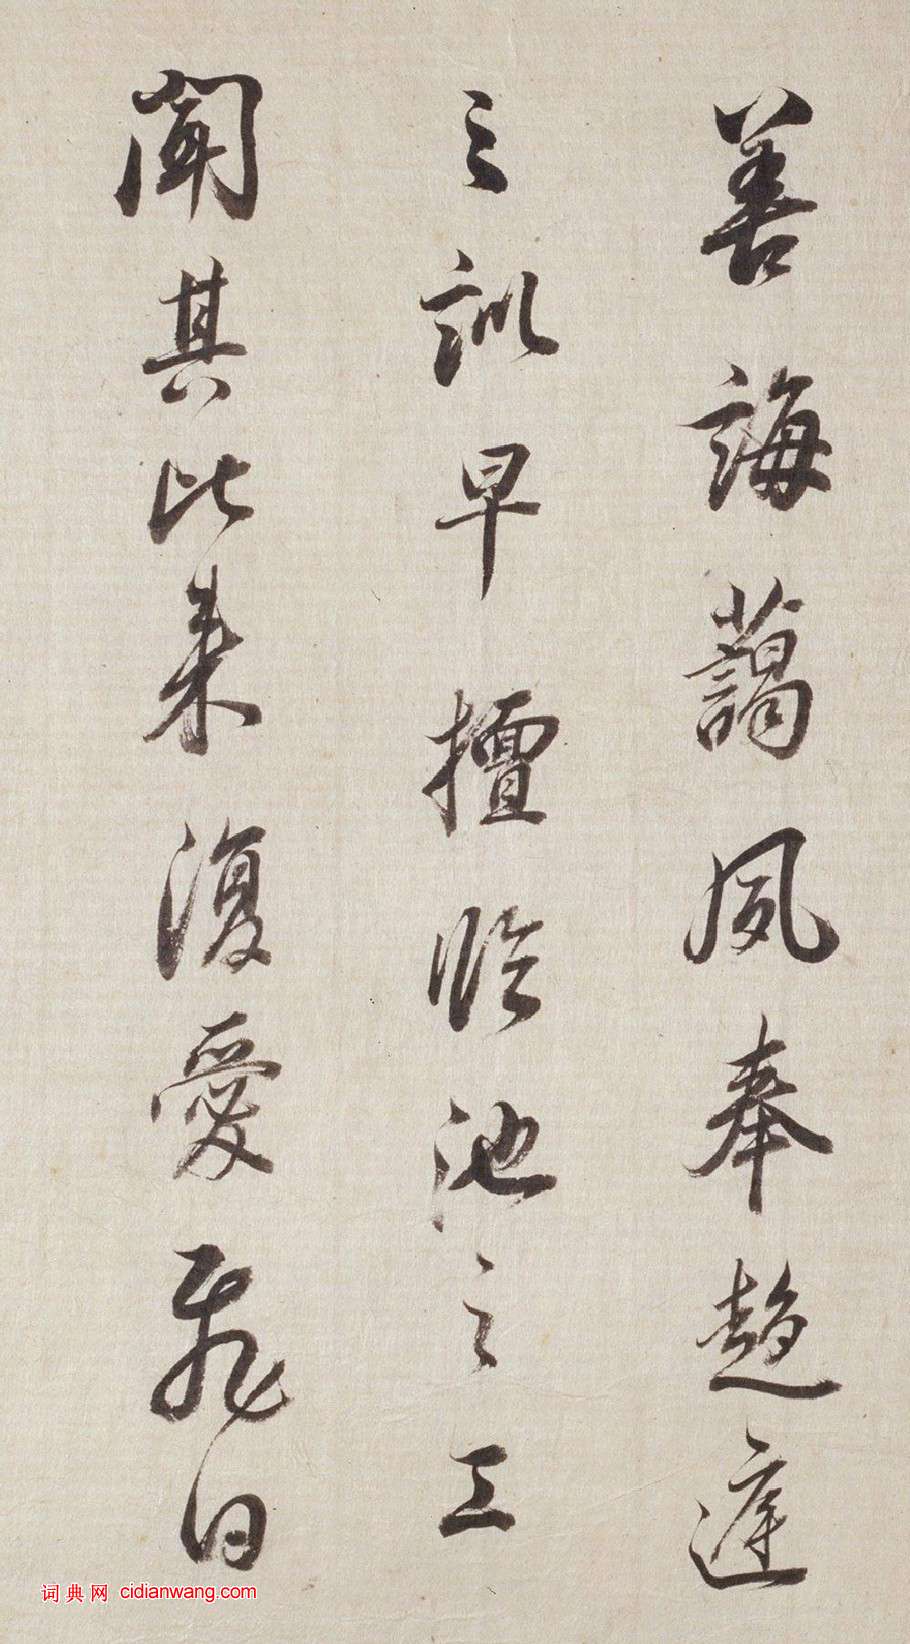 善誨藹夙奉趨遲
之訓早擅臨池之工
聞其比来復愛飛白
词典网 cidianwang.com